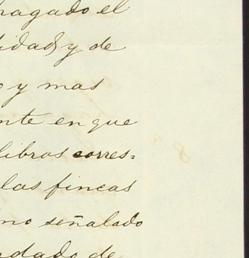 hagado el
idad, y de
o y mas
nte en que
libros corres=
las fincas
mo señalado
ndado de